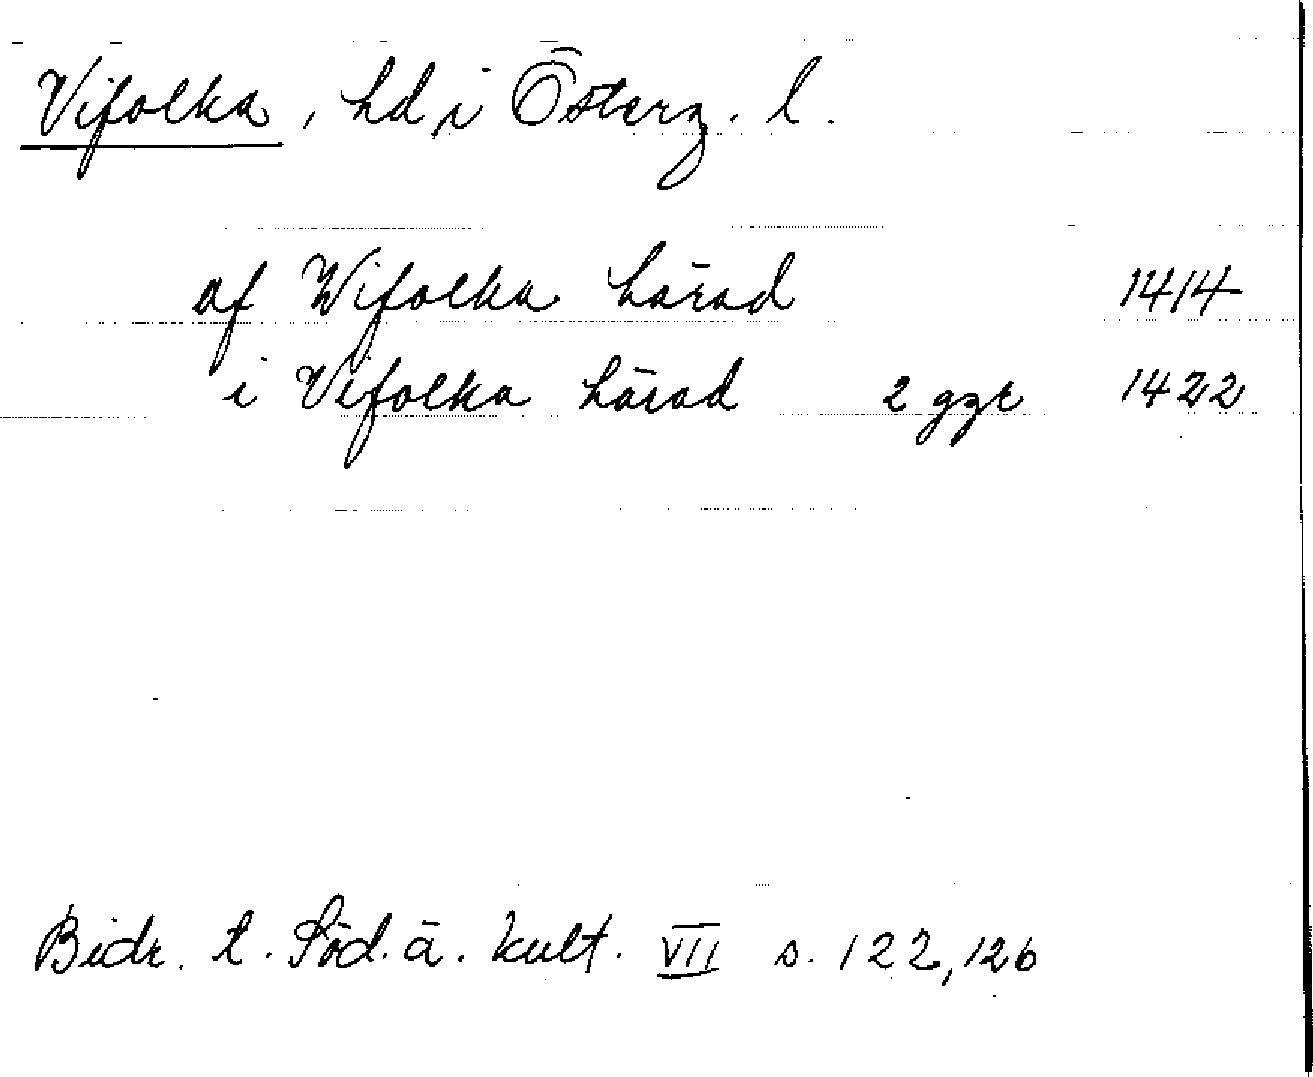 Vifolka, hd, i Österg. l.
af Wifolka härad 1414
i Vifolka härad 2 ggr 1422
Bidr. t. Söd. ä. kult. VII s. 122, 126